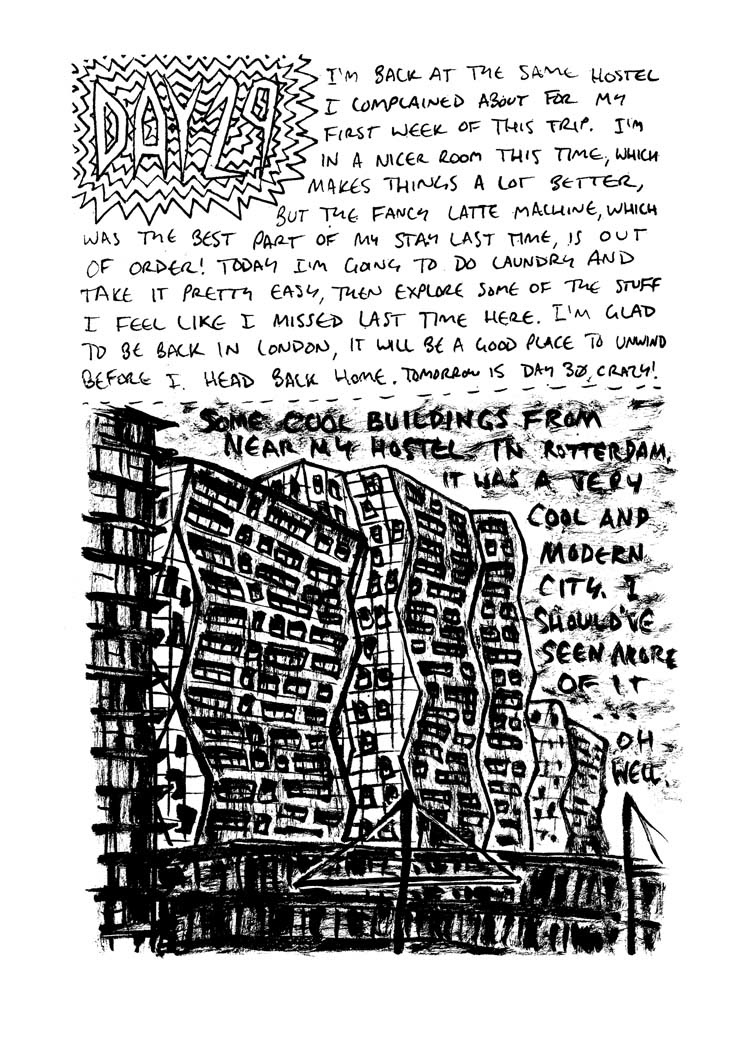 DAY 29
I'M BACK AT THE SAME HOSTEL
I COMPLAINED ABOUT FOR MY
FIRST WEEK OF THIS TRIP. I'M
IN A NICER ROOM THIS TIME, WHICH
MAKES THINGS A LOT BETTER,
BUT THE FANCY LATTE MACHINE, WHICH
WAS THE BEST PART OF MY STAY LAST TIME, IS OUT
OF ORDER! TODAY I'M GOING TO DO LAUNDRY AND
TAKE IT PRETTY EASY, THEN EXPLORE SOME OF THE STUFF
I FEEL LIKE I MISSED LAST TIME HERE. I'M GLAD
TO BE BACK IN LONDON, IT WILL BE A GOOD PLACE TO UNWIND
BEFORE I HEAD BACK HOME. TOMORROW IS DAY 30, CRAZY!
SOME COOL BUILDINGS FROM
NEAR MY HOSTEL IN ROTTERDAM.
IT WAS A VERY
COOL AND
MODERN
CITY. I
SHOULD'VE
SEEN MORE
OF IT
...
OH
WELL.